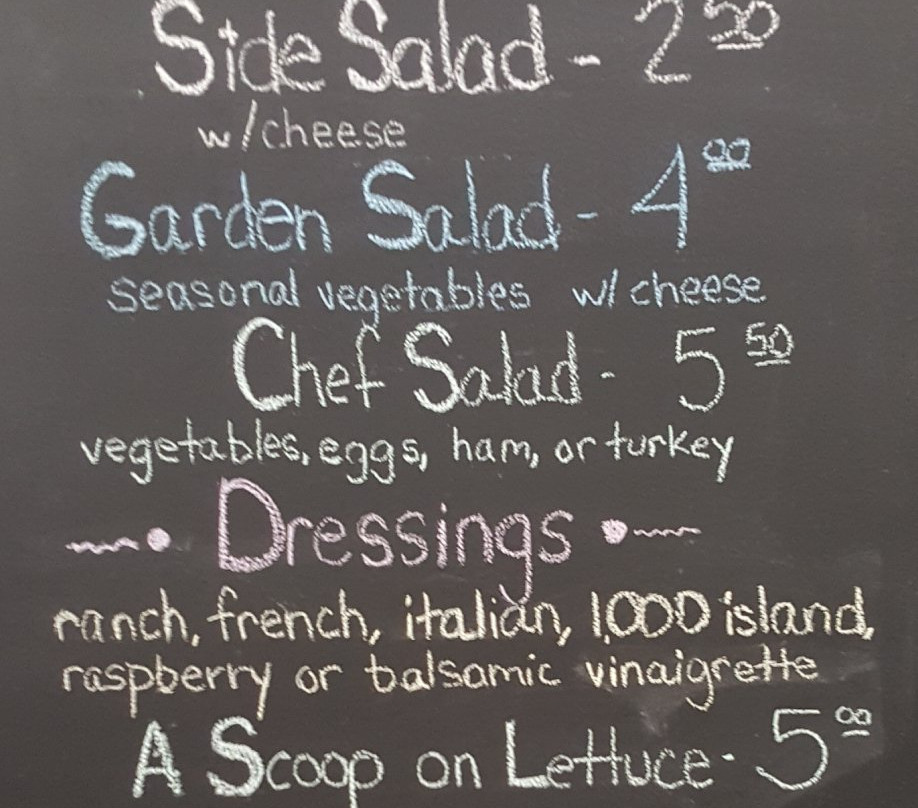 Side Salad - 2 50
w/cheese
Garden Salad - 4 00
seasonal vegetables w/ cheese
Chef Salad - 5 50
vegetables, eggs, ham, or turkey
Dressings
ranch, french, italian, 1,000 island,
raspberry or balsamic vinaigrette
A Scoop on Lettuce - 5 00